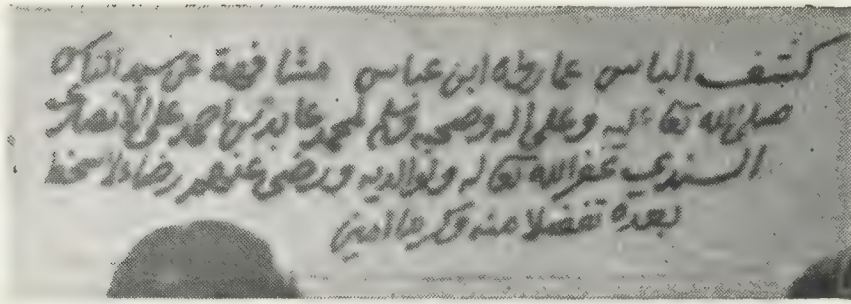 كشف الباس عما رواه ابن عباس مشافهة عن سيد الناس
صلى الله تعا عليه وعلى اله وصحبه وسلم لمحمد عابد بن احمد علي الانصاري
السندي غفر الله تعا له ولوالديه ورضى عنهم رضاء لا سخط
بعده تفضلا منه وكرما امين